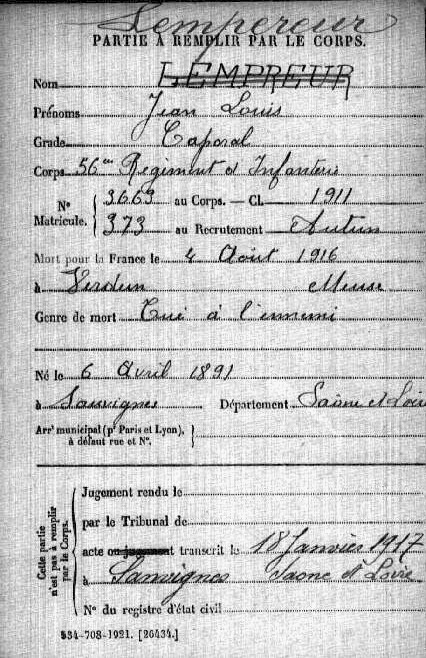 Lempereur
PARTIE À REMPLIR PAR LE CORPS.
Nom LEMPREUR
Prénoms Jean Louis
Grade Caporal
Corps 56me Regiment d'Infanterie
N° Matricule. { 3669 au Corps. — Cl. 1911
373 au Recrutement Autun
Mort pour la France le 4 Août 1916
à Verdun Meuse
Genre de mort Tué à l'ennemi
Né le 6 Avril 1891
à Sanvignes Département Saône et Loire
Arrt municipal (pr Paris et Lyon), à défaut rue et N°. }
Cette partie n'est pas à remplir par le Corps. {
Jugement rendu le
par le Tribunal de
acte ou jugement transcrit le 18 Janvier 1917
à Sanvignes Saone et Loire
N° du registre d'état civil
534-708-1921. [26434.]